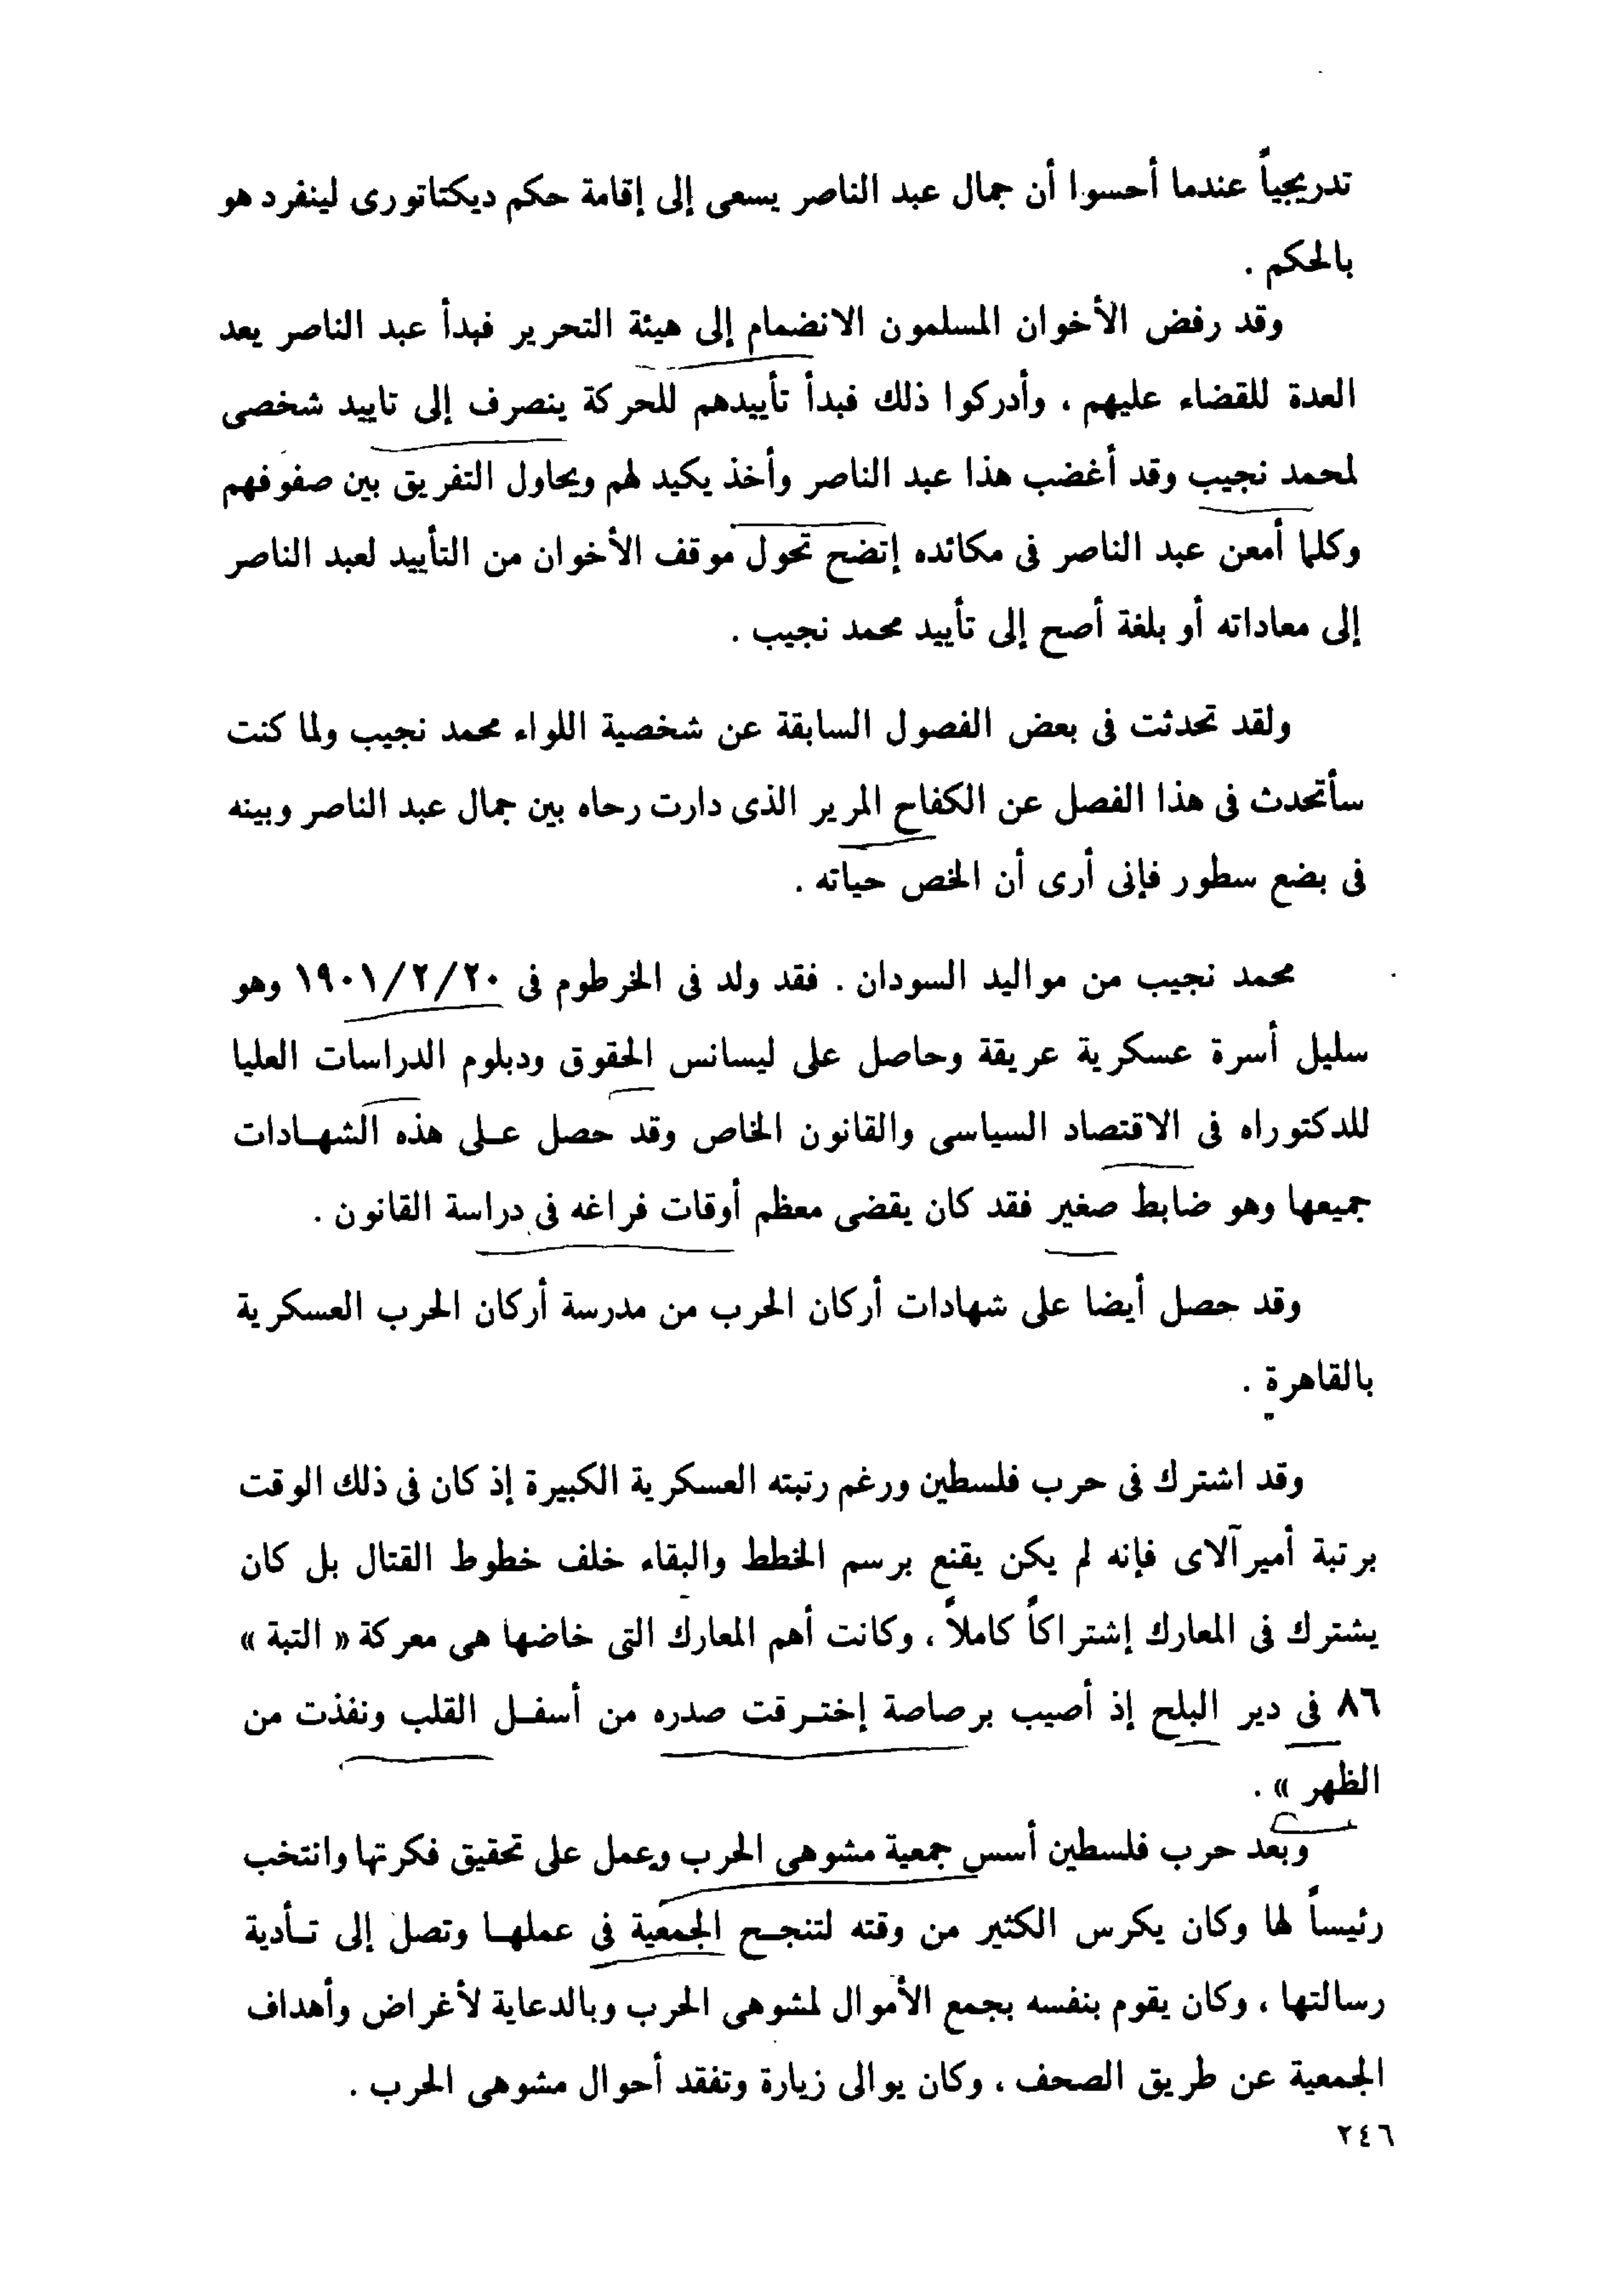 تدريجياً عندما أحسوا أن جمال عبد الناصر يسعى إلى إقامة حكم ديكتاتورى لينفرد هو
بالحكم .
وقد رفض الأخوان المسلمون الانضمام إلى هيئة التحرير فبدأ عبد الناصر يعد
العدة للقضاء عليهم ، وأدركوا ذلك فبدأ تأييدهم للحركة ينصرف إلى تاييد شخصى
لمحمد نجيب وقد أغضب هذا عبد الناصر وأخذ يكيد لهم ويحاول التفريق بين صفوفهم
وكلما أمعن عبد الناصر فى مكائده إتضح تحول موقف الأخوان من التأييد لعبد الناصر
إلى معاداته أو بلغة أصح إلى تأييد محمد نجيب .
ولقد تحدثت فى بعض الفصول السابقة عن شخصية اللواء محمد نجيب ولما كنت
سأتحدث فى هذا الفصل عن الكفاح المرير الذى دارت رحاه بين جمال عبد الناصر وبينه
فى بضع سطور فإنى أرى أن الخص حياته .
محمد نجيب من مواليد السودان . فقد ولد فى الخرطوم فى ١٩٠١/٢/٢٠ وهو
سليل أسرة عسكرية عريقة وحاصل على ليسانس الحقوق ودبلوم الدراسات العليا
للدكتوراه فى الاقتصاد السياسى والقانون الخاص وقد حصل عـلى هذه الشهـادات
جميعها وهو ضابط صغير فقد كان يقضى معظم أوقات فراغه فى دراسة القانون .
وقد حصل أيضا على شهادات أركان الحرب من مدرسة أركان الحرب العسكرية
بالقاهرة .
وقد اشترك فى حرب فلسطين ورغم رتبته العسكرية الكبيرة إذ كان فى ذلك الوقت
برتبة أميرآلاى فإنه لم يكن يقنع برسم الخطط والبقاء خلف خطوط القتال بل كان
يشترك فى المعارك إشتراكاً كاملاً ، وكانت أهم المعارك التى خاضها هى معركة « التبة »
٨٦ فى دير البلح إذ أصيب برصاصة إختـرقت صدره من أسفـل القلب ونفذت من
الظهر » .
وبعد حرب فلسطين أسس جمعية مشوهى الحرب وعمل على تحقيق فكرتها وانتخب
رئيساً لها وكان يكرس الكثير من وقته لتنجـح الجمعية فى عملهـا وتصل إلى تـأدية
رسالتها ، وكان يقوم بنفسه بجمع الأموال لمشوهى الحرب وبالدعاية لأغراض وأهداف
الجمعية عن طريق الصحف ، وكان يوالى زيارة وتفقد أحوال مشوهى الحرب .
٢٤٦